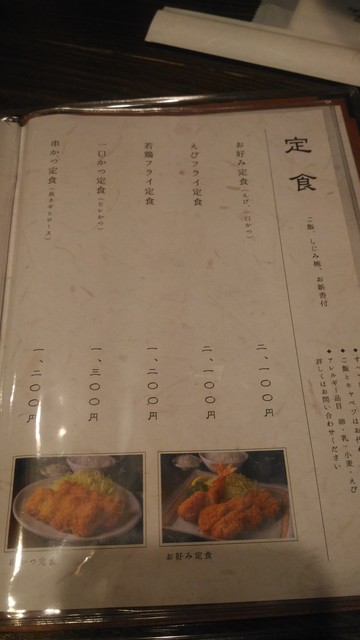 定食
ご飯、しじみ椀、お新香付
お好み定食(えび、一口かつ)
二、一〇〇円
えびフライ定食
二、一〇〇円
若鶏フライ定食
一、二〇〇円
一口かつ定食(ヒレかつ)
一、三〇〇円
串かつ定食(長ネギとロース)
一、二〇〇円
◆ご飯とキャベツはお代わ
◆アレルギー品目 卵・乳・小麦・えび
詳しくはお問い合わせください
お好み定食
かつ定食